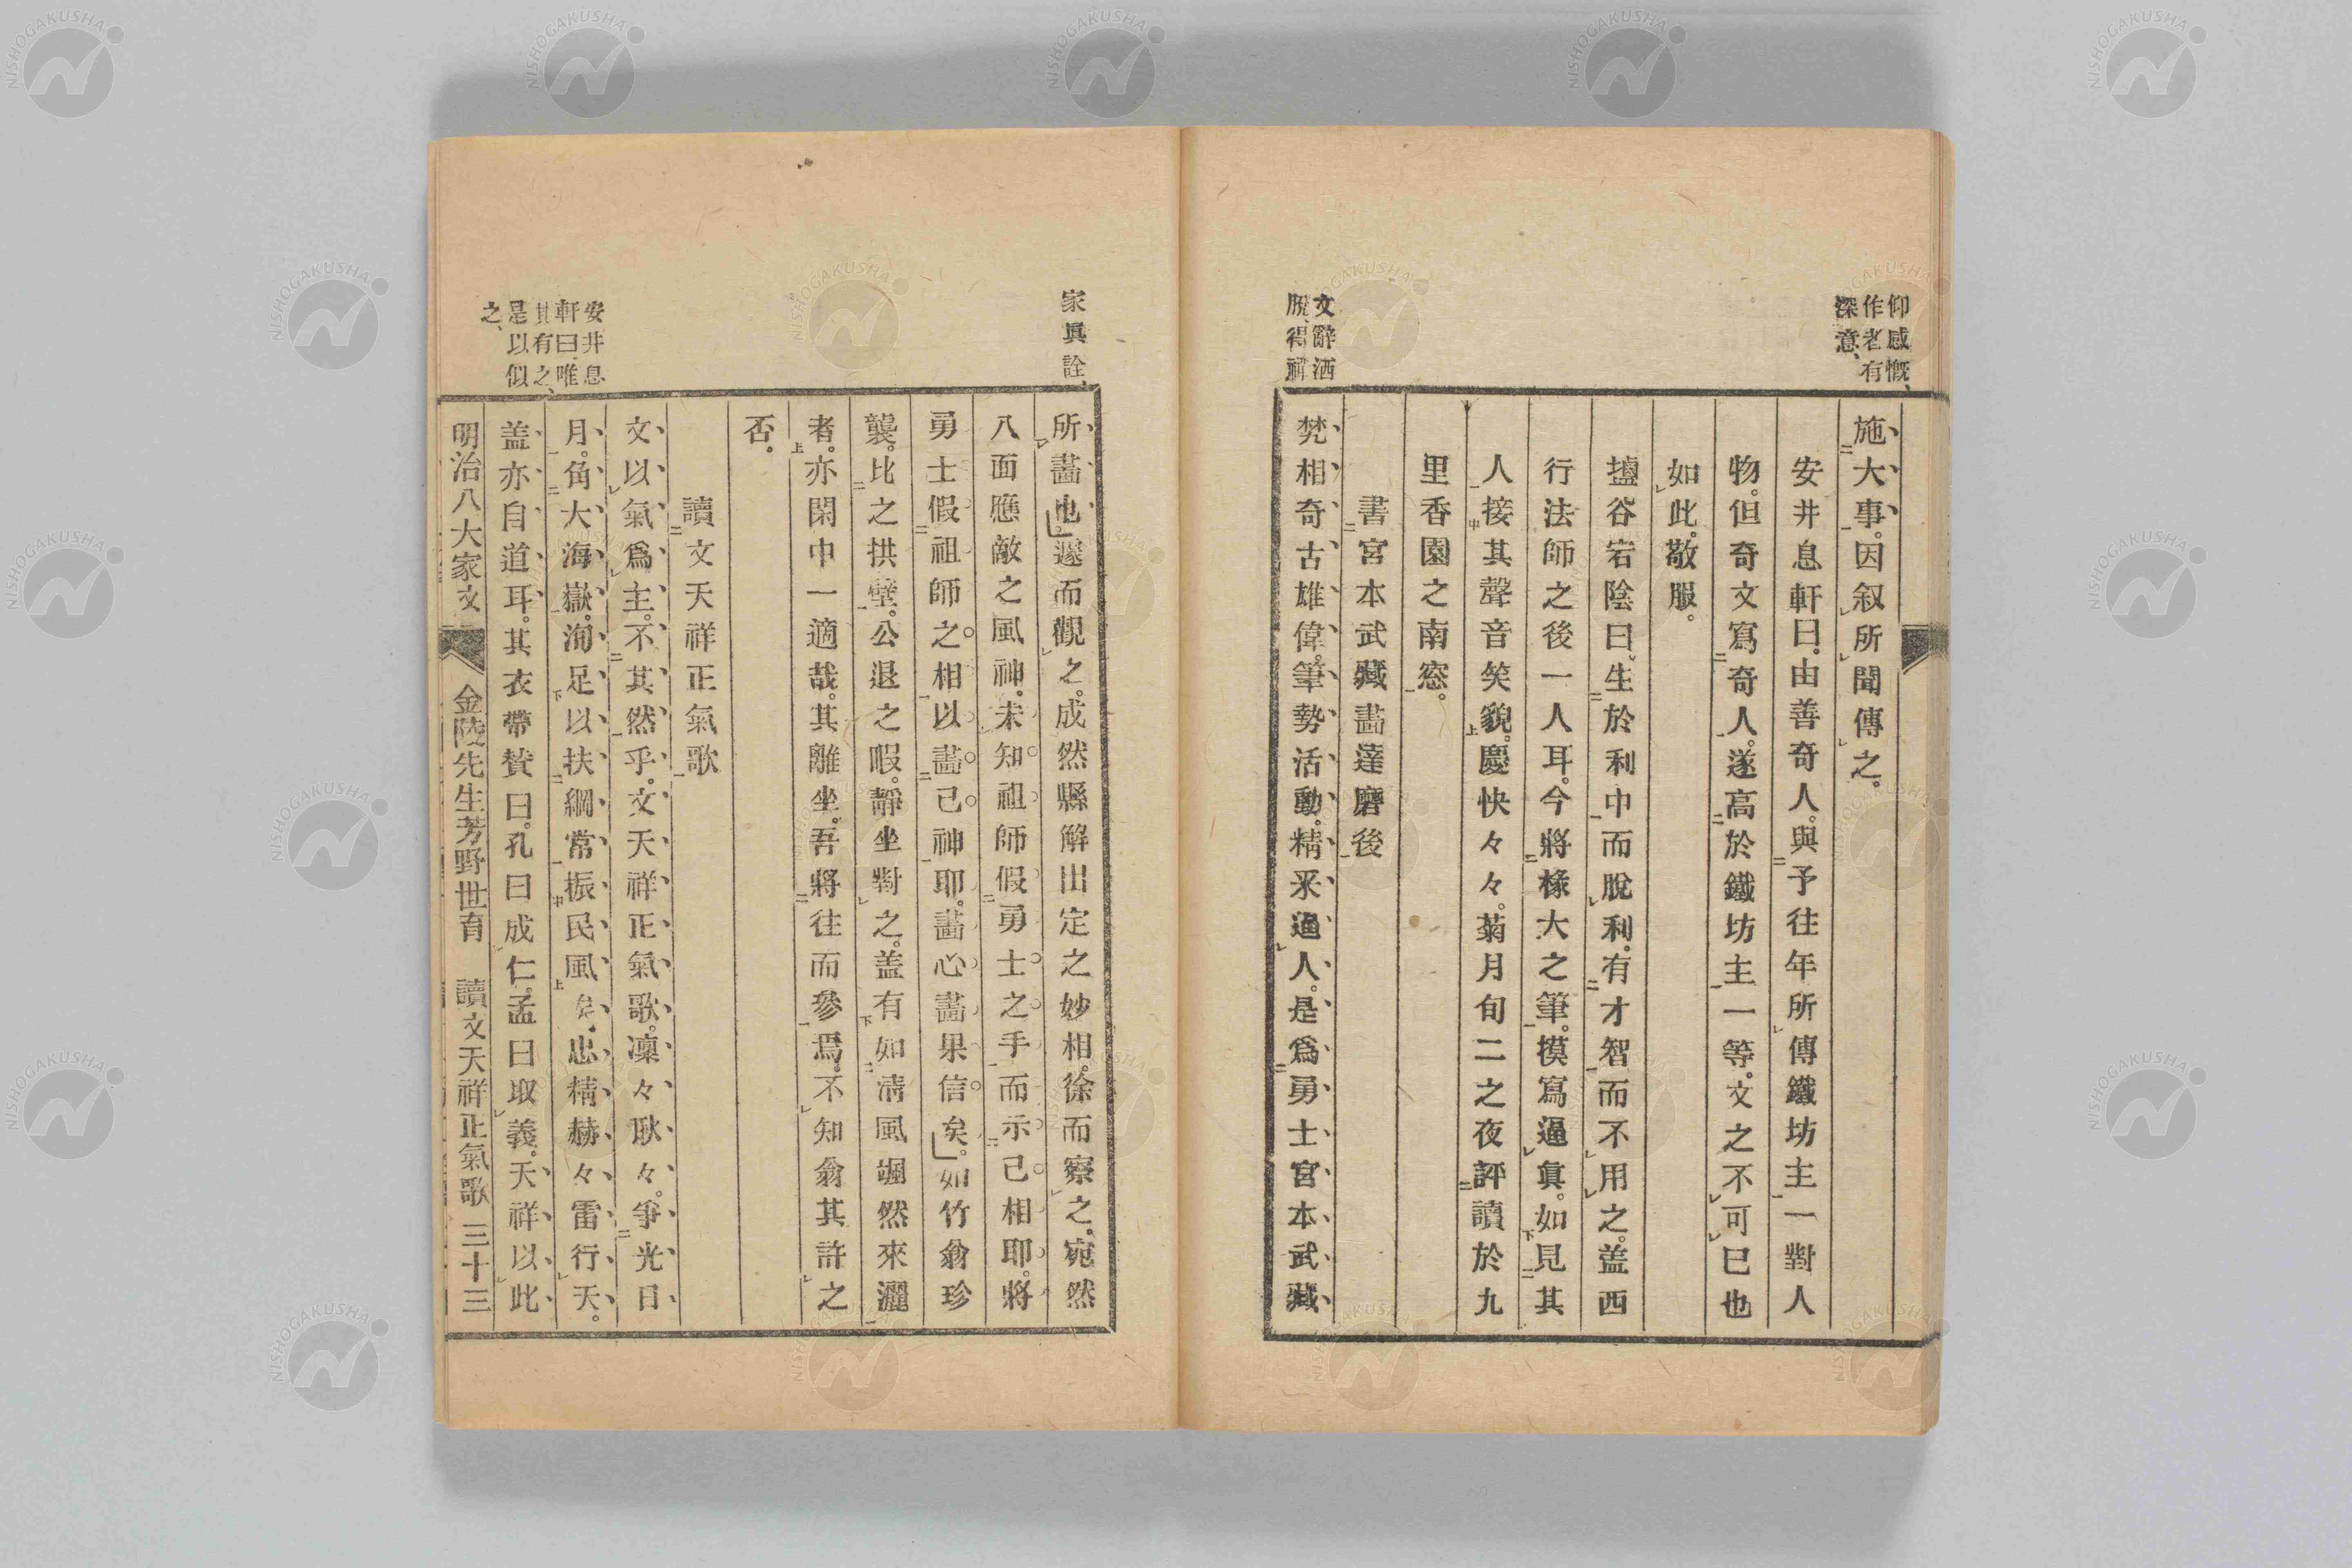 仰感慨、
作者有
深意、
施大事。因叙所聞傳之。
安井息軒曰。由善奇人。與予往年所傳鐵坊主一對人
物。但奇文寫奇人。遂高於鐵坊主一等。文之不可已也
如此。敬服。
鹽谷宕陰曰。生於利中而脫利。有才智而不用之。盖西
行法師之後一人耳。今將椽大之筆。摸寫逼眞。如見其
人接其聲音笑貌。慶快々々。菊月旬二之夜評讀於九
里香園之南窓。
書宮本武藏畵達磨後
文辭洒
脫、得禪
梵相奇古雄偉。筆勢活動。精釆過人。是爲勇士宮本武藏
家眞詮、
所畵也。遽而觀之。成然縣解出定之妙相。徐而察之。宛然
八面應敵之風神。未知祖師假勇士之手而示己相耶。將
勇士假祖師之相以畵己神耶。畵心畵果信矣。如竹翁珍
襲。比之拱璧。公退之暇。靜坐對之。盖有如淸風颯然來灑
者。亦閑中一適哉。其離坐。吾將往而參焉。不知翁其許之
否。
讀文天祥正氣歌
文以氣爲主。不其然乎。文天祥正氣歌。凜々耿々。爭光日
月。角大海嶽。洵足以扶綱常振民風矣。忠精赫々雷行天。
安井息
軒曰、唯
其有之、
是以似
之、
盖亦自道耳。其衣帶贊曰。孔曰成仁。孟曰取義。天祥以此
明治八大家文　金陵先生芳野世育　讀文天祥正氣歌　三十三